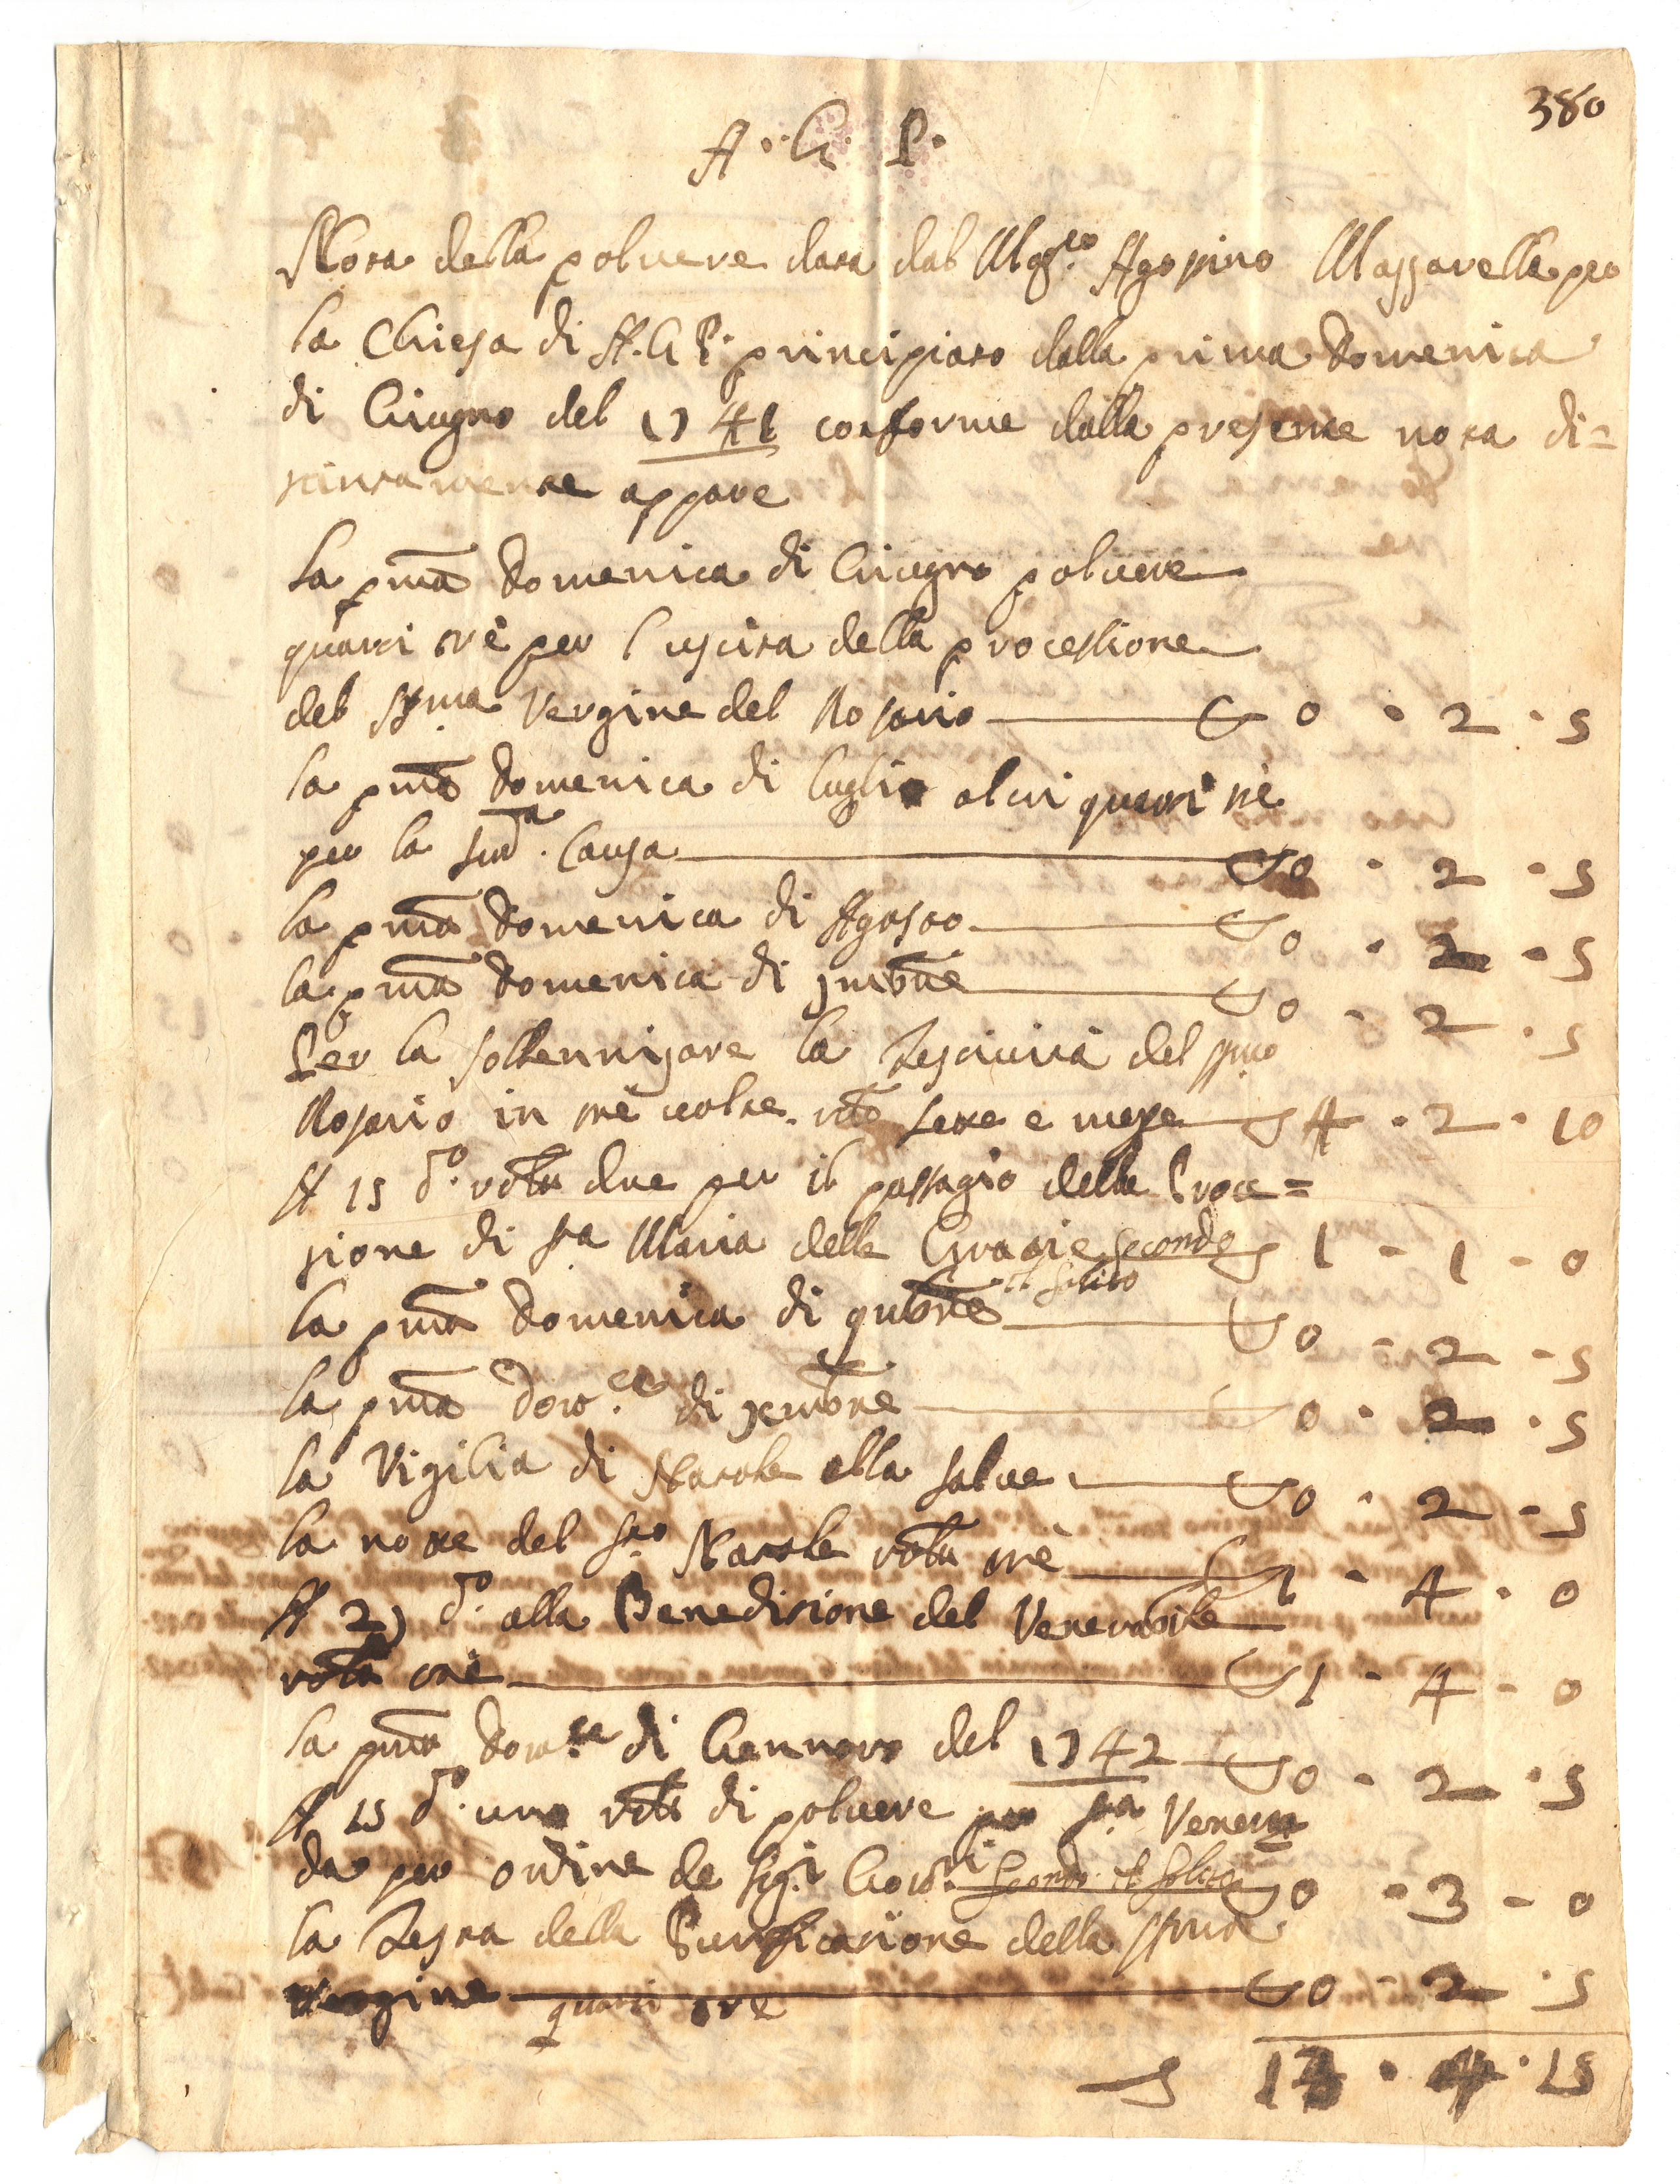 380
A. G. P.
Nota della poluere data dal Mg.co Agostino Mazzarella per
la Chiesa di A. G P. principiato dalla prima Domenica
di Giugno del 1741 conforme dalla presente nota di=
stintamente appare
la pma Domenica di Giugno poluere
quarti trè per l uscita della processione
del SSma Vergine del Rosario 0 . 2 . 5
la pma Domenica di luglio altri quarti trè
per la sud.a Causa 0 . 2 . 5
la pma Domenica di Agosto 0 . 2 . 5
la pma Domenica di 7mbre 0 . 2 . 5
Per la sollennizare la Festività del SSmo
Rosario in trè uolte. rtla sette e meze 4 . 2 . 10
A 15 do. rtla due per il passagio della Proce=
sione di Sta Maria delle Grazie secondo 1 . 1 . 0
il solito
la pma Domenica di 9mbre 0 . 2 . 5
la pma Dom.ca di xmbre 0 . 2 . 5
la Vigilia di Natale alla salue 0 . 2 . 5
la notte del Sto Natale rtla trè 1 . 4 . 0
A 27 do. alla Benedizione del Venerabile
rtla trè 1 . 4 . 0
la pma Dom.ca di Gennaro del 1742 0 . 2 . 5
A 15 do. uno rtlo di poluere per Sta Veneran
da per ordine de Sig.i Gou.ri secondo il solito 0 . 3 . 0
la Festa della Purificatione della SSma
Vergine quarti tre 0 . 2 . 5
13 . 4 . 15